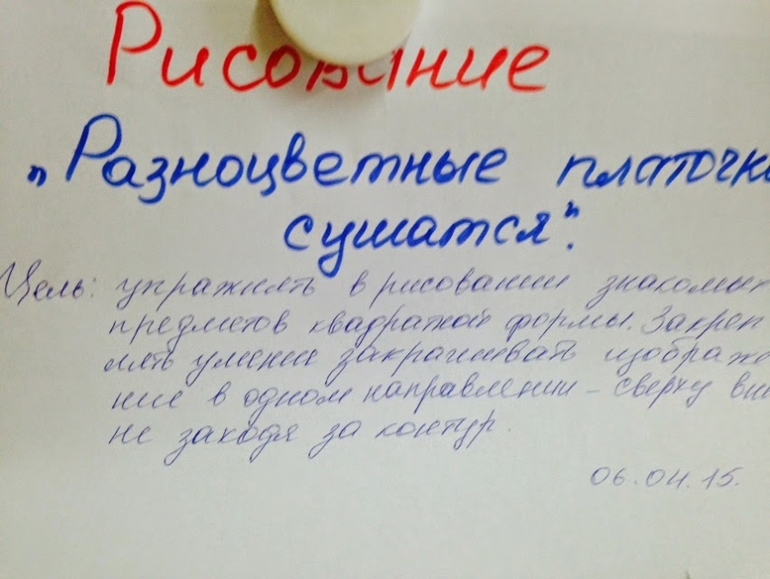 Рисование
„Разноцветные платочк
сушатся".
Цель: упражнять в рисовании знакомых
предметов квадратной формы. Закреп
лять умение закрашивать изображе
ние в одном направлении – сверху вни
не заходя за контур.
06.04.15.